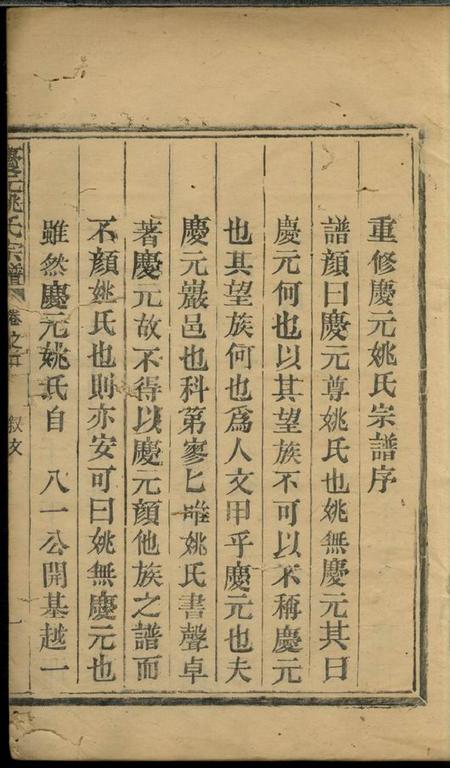 重修慶元姚氏宗譜序
譜顏曰慶元尊姚氏也姚無慶元其曰
慶元何也以其望族不可以不稱慶元
也其望族何也爲人文甲乎慶元也夫
慶元巖邑也科第寥匕唯姚氏書聲卓
著慶元故不得以慶元顏他族之譜而
不顏姚氏也則亦安可曰姚無慶元也
雖然慶元姚氏自 八一公開基越一
慶元姚氏宗譜 卷之 叙文 一